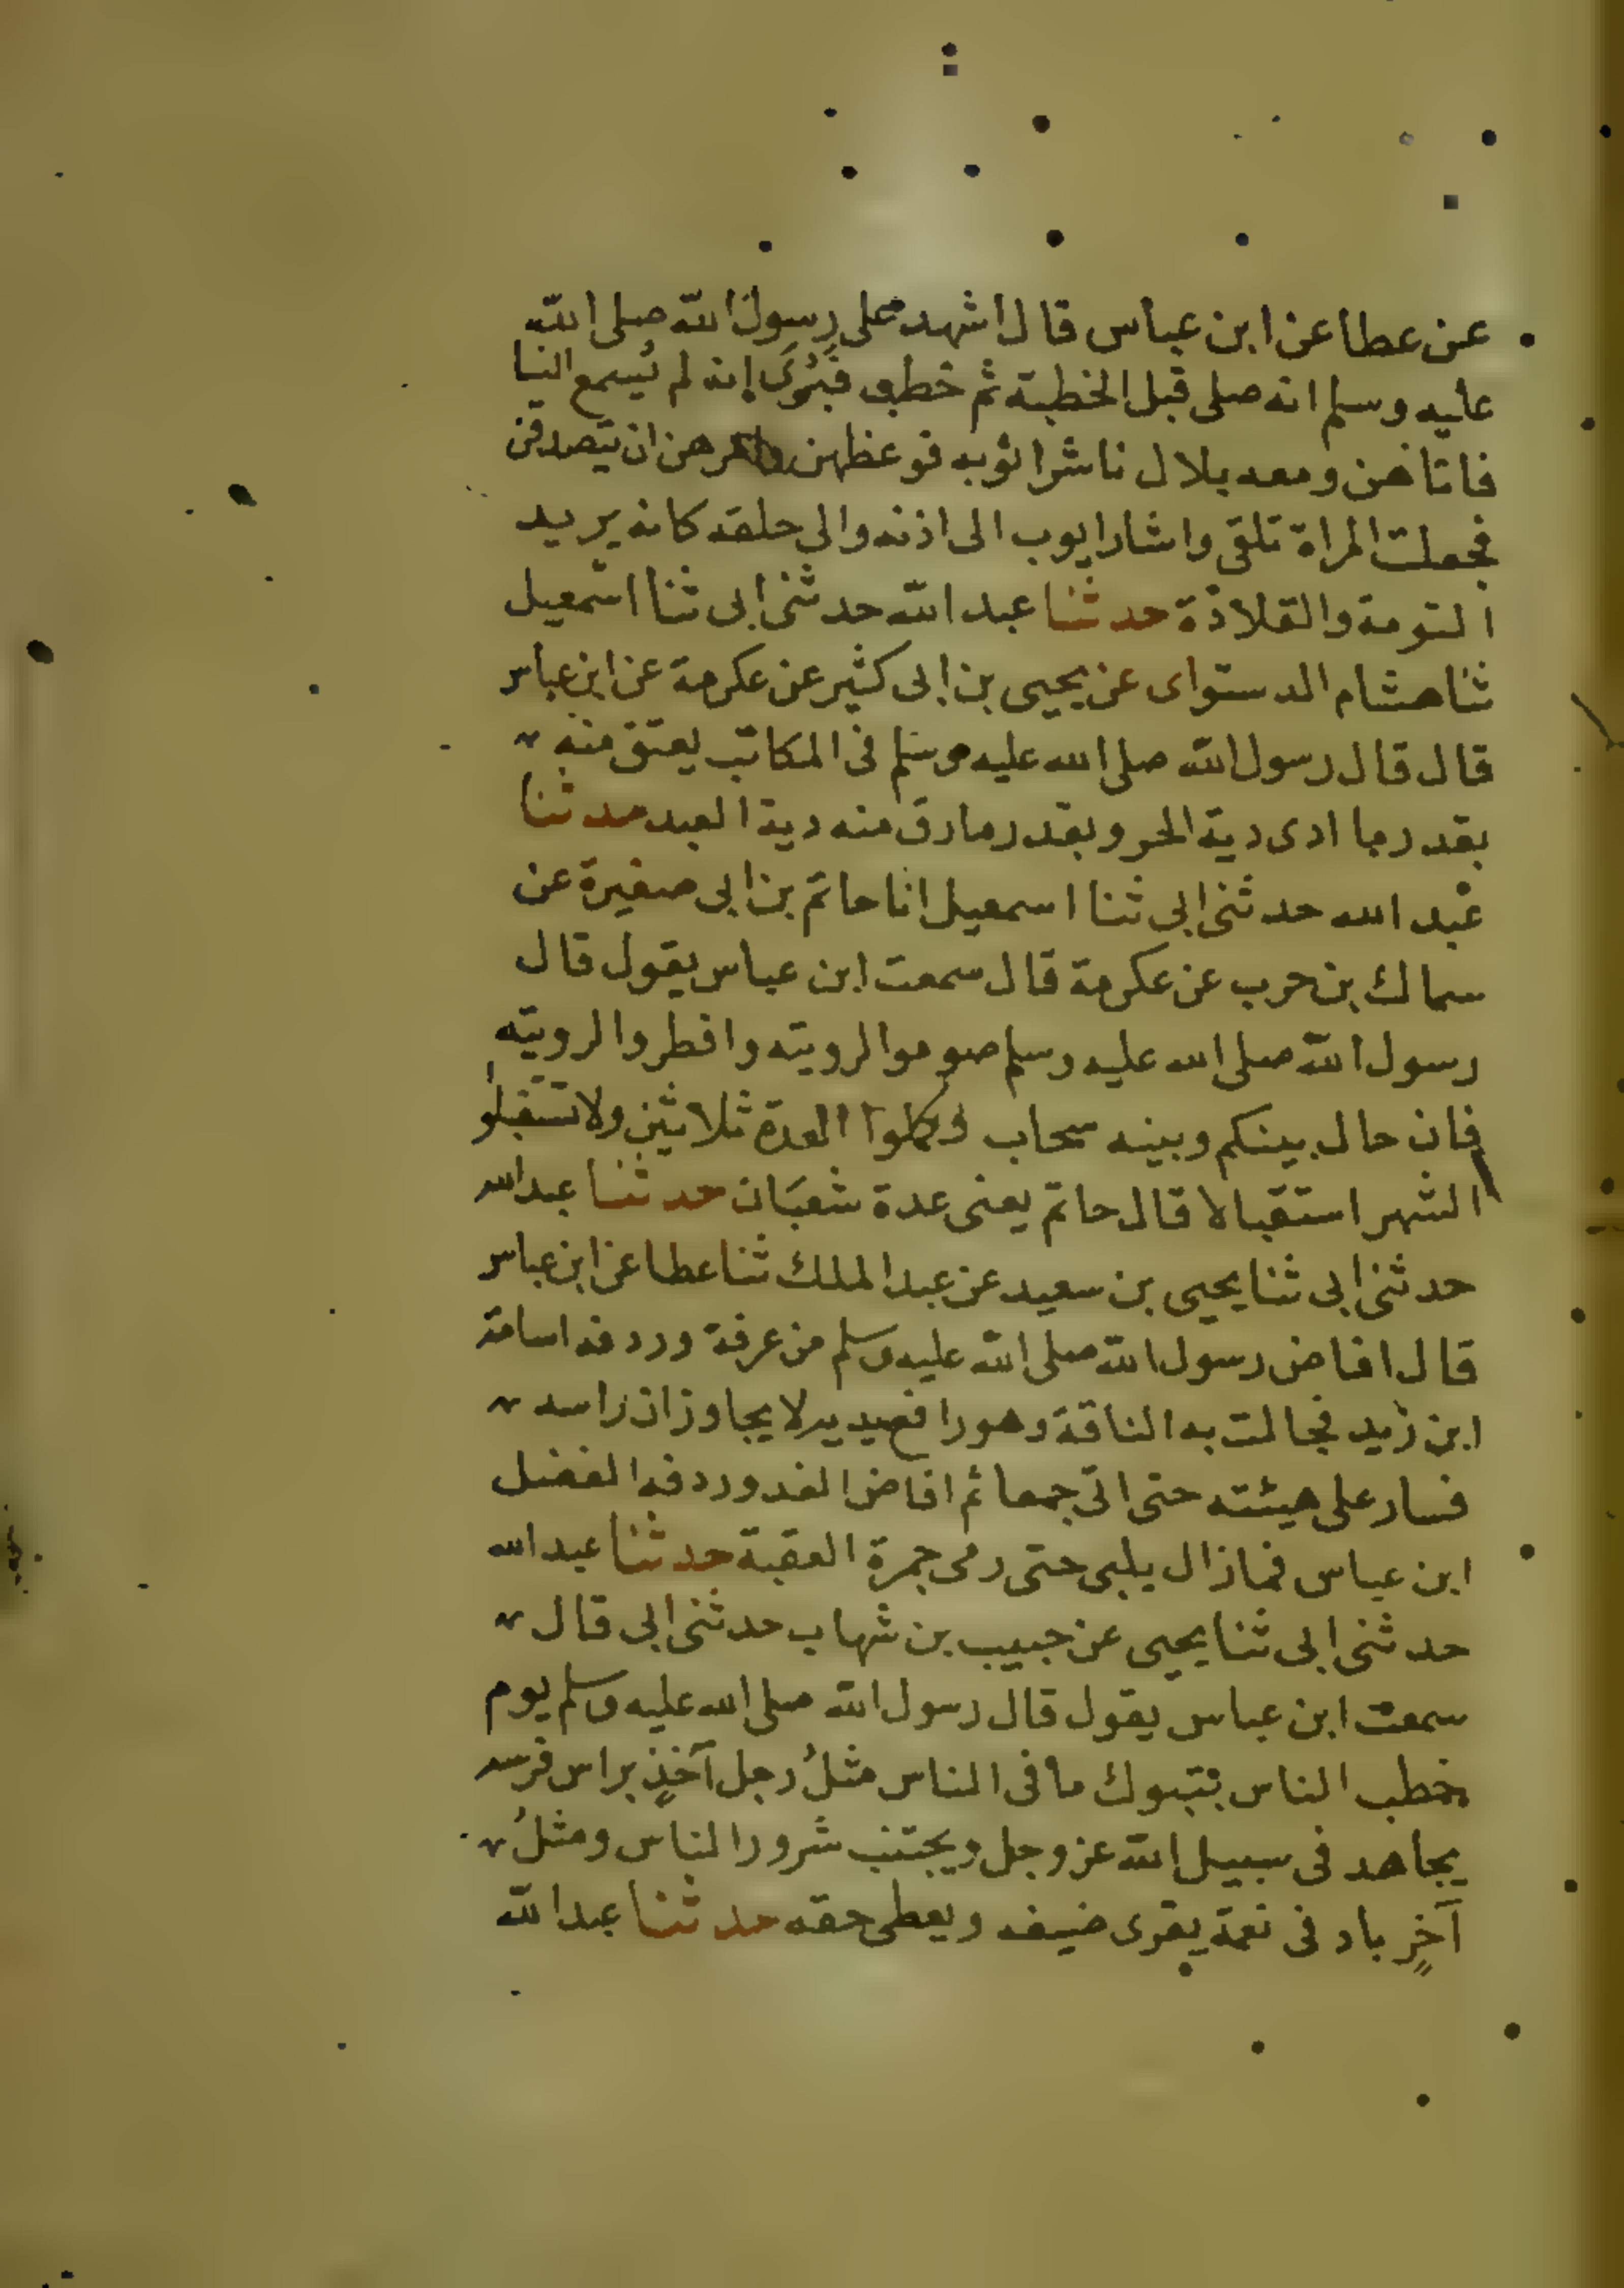 عن عطا عن ابن عباس قال اشهد على رسول الله صلى الله
عليه وسلم انه صلى قبل الخطبة ثم خطب فَيُرَى إنه لم يُسمع النسا
فاتاهن ومعه بلال ناشرا ثوبه فوعظهن وامرهن ان يتصدقن
فجعلت المراة تلقى واشار ايوب الى اذنه والى حلقه كانه يريد
التومة والقلادة حدثنا عبد الله حدثنى ابى ثنا اسمعيل
ثنا هشام الدستواى عن يحيى بن ابى كثير عن عكرمة عن ابن عباس
قال قال رسول الله صلى الله عليه وسلم فى المكاتب يعتق منه
بقدر ما ادى دية الحر وبقدر ما رق منه دية العبد حدثنا
عبد الله حدثنى ابى ثنا اسمعيل انا حاتم بن ابى صغيرة عن
سماك بن حرب عن عكرمة قال سمعت ابن عباس يقول قال
رسول الله صلى الله عليه وسلم صوموا لرويته وافطروا لرويته
فان حال بينكم وبينه سحاب فكملوا العدة ثلاثين ولا تستقبلوا
الشهر استقبالا قال حاتم يعنى عدة شعبَان حدثنا عبد الله
حدثنى ابى ثنا يحيى بن سعيد عن عبد الملك ثنا عطا عن ابن عباس
قال افاض رسول الله صلى الله عليه وسلم من عرفة وردفه اسامة
ابن زيد فجالت به الناقة وهو رافع يديه لا يجاوزان راسه
فسار على هيئته حتى اتى جمعا ثم افاض الغد وردفه الفضل
ابن عباس فما زال يلبى حتى رمى جمرة العقبة حدثنا عبد الله
حدثنى ابى ثنا يحيى عن حبيب بن شهاب حدثنى ابى قال
سمعت ابن عباس يقول قال رسول الله صلى الله عليه وسلم يوم
خطب الناس بتبوك ما فى الناس مثلُ رجل آخذٍ براس فرسه
يجاهد فى سبيل الله عز وجل ويجتنب شرور الناس ومثلُ
آخرٍ باد فى نعمة يقرى ضيفه ويعطى حقه حدثنا عبد الله